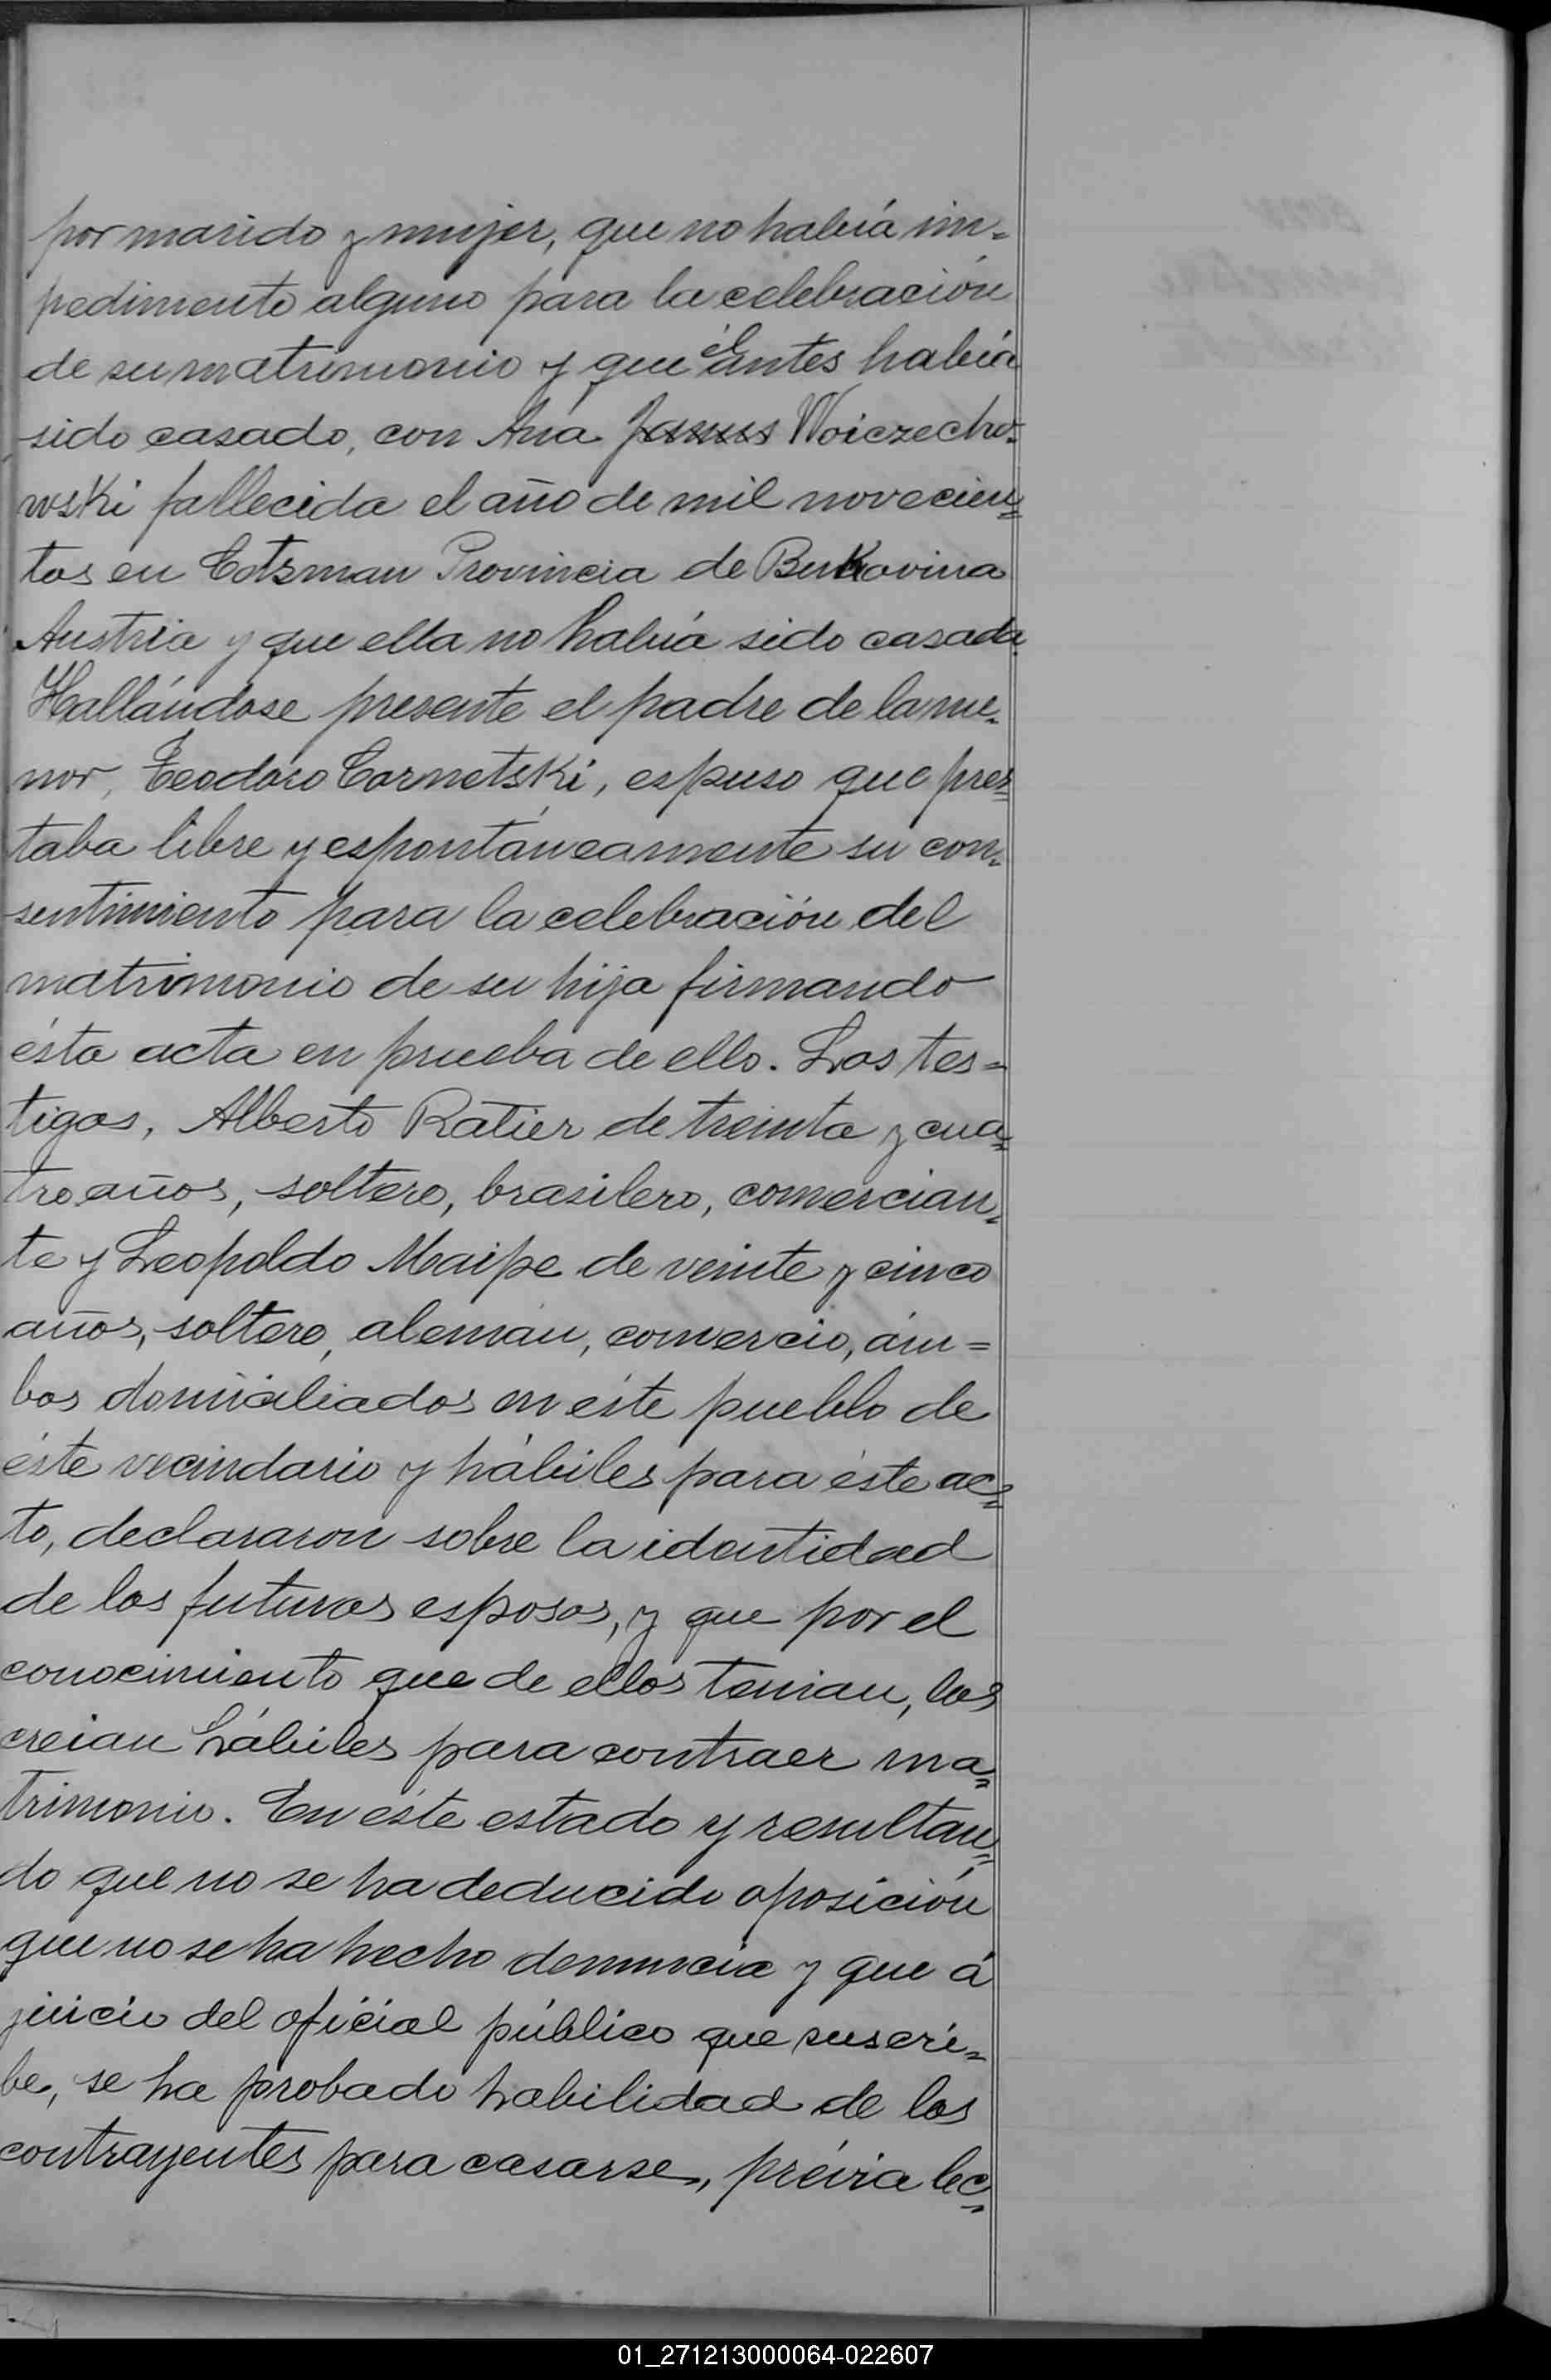 por marido y mujer, que no había im-
pedimento alguno para la celebración
de su matrimonio y que él antes había
sido casado, con Ana Janus Woiczecho-
wski fallecida el año de mil novecien=
tos en Cotzman Provincia de Bukovina
Austria y que ella no había sido casada.
Hallándose presente el padre de la me-
nor, Teodoro Cornetski, espuso que pres=
taba libre y espontáneamente su con-
sentimiento para la celebración del
matrimonio de su hija firmando
ésta acta en prueba de ello. Los tes=
tigos, Alberto Ratier de treinta y cua=
tro años, soltero, brasilero, comercian-
te y Leopoldo Maipe de veinte y cinco
años, soltero, alemán, comercio, ám=
bos domiciliados en éste pueblo de
éste vecindario y hábiles para éste ac=
to, declararon sobre la identidad
de los futuros esposos, y que por el
conocimiento que de ellos tenian, los
creian hábiles para contraer ma=
trimonio. En éste estado y resultan=
do que no se ha deducido oposición
que no se ha hecho denuncia y que á
juicio del oficial público que suscri=
be, se ha probado habilidad de los
contrayentes para casarse, prévia lec=
01_271213000064-022607